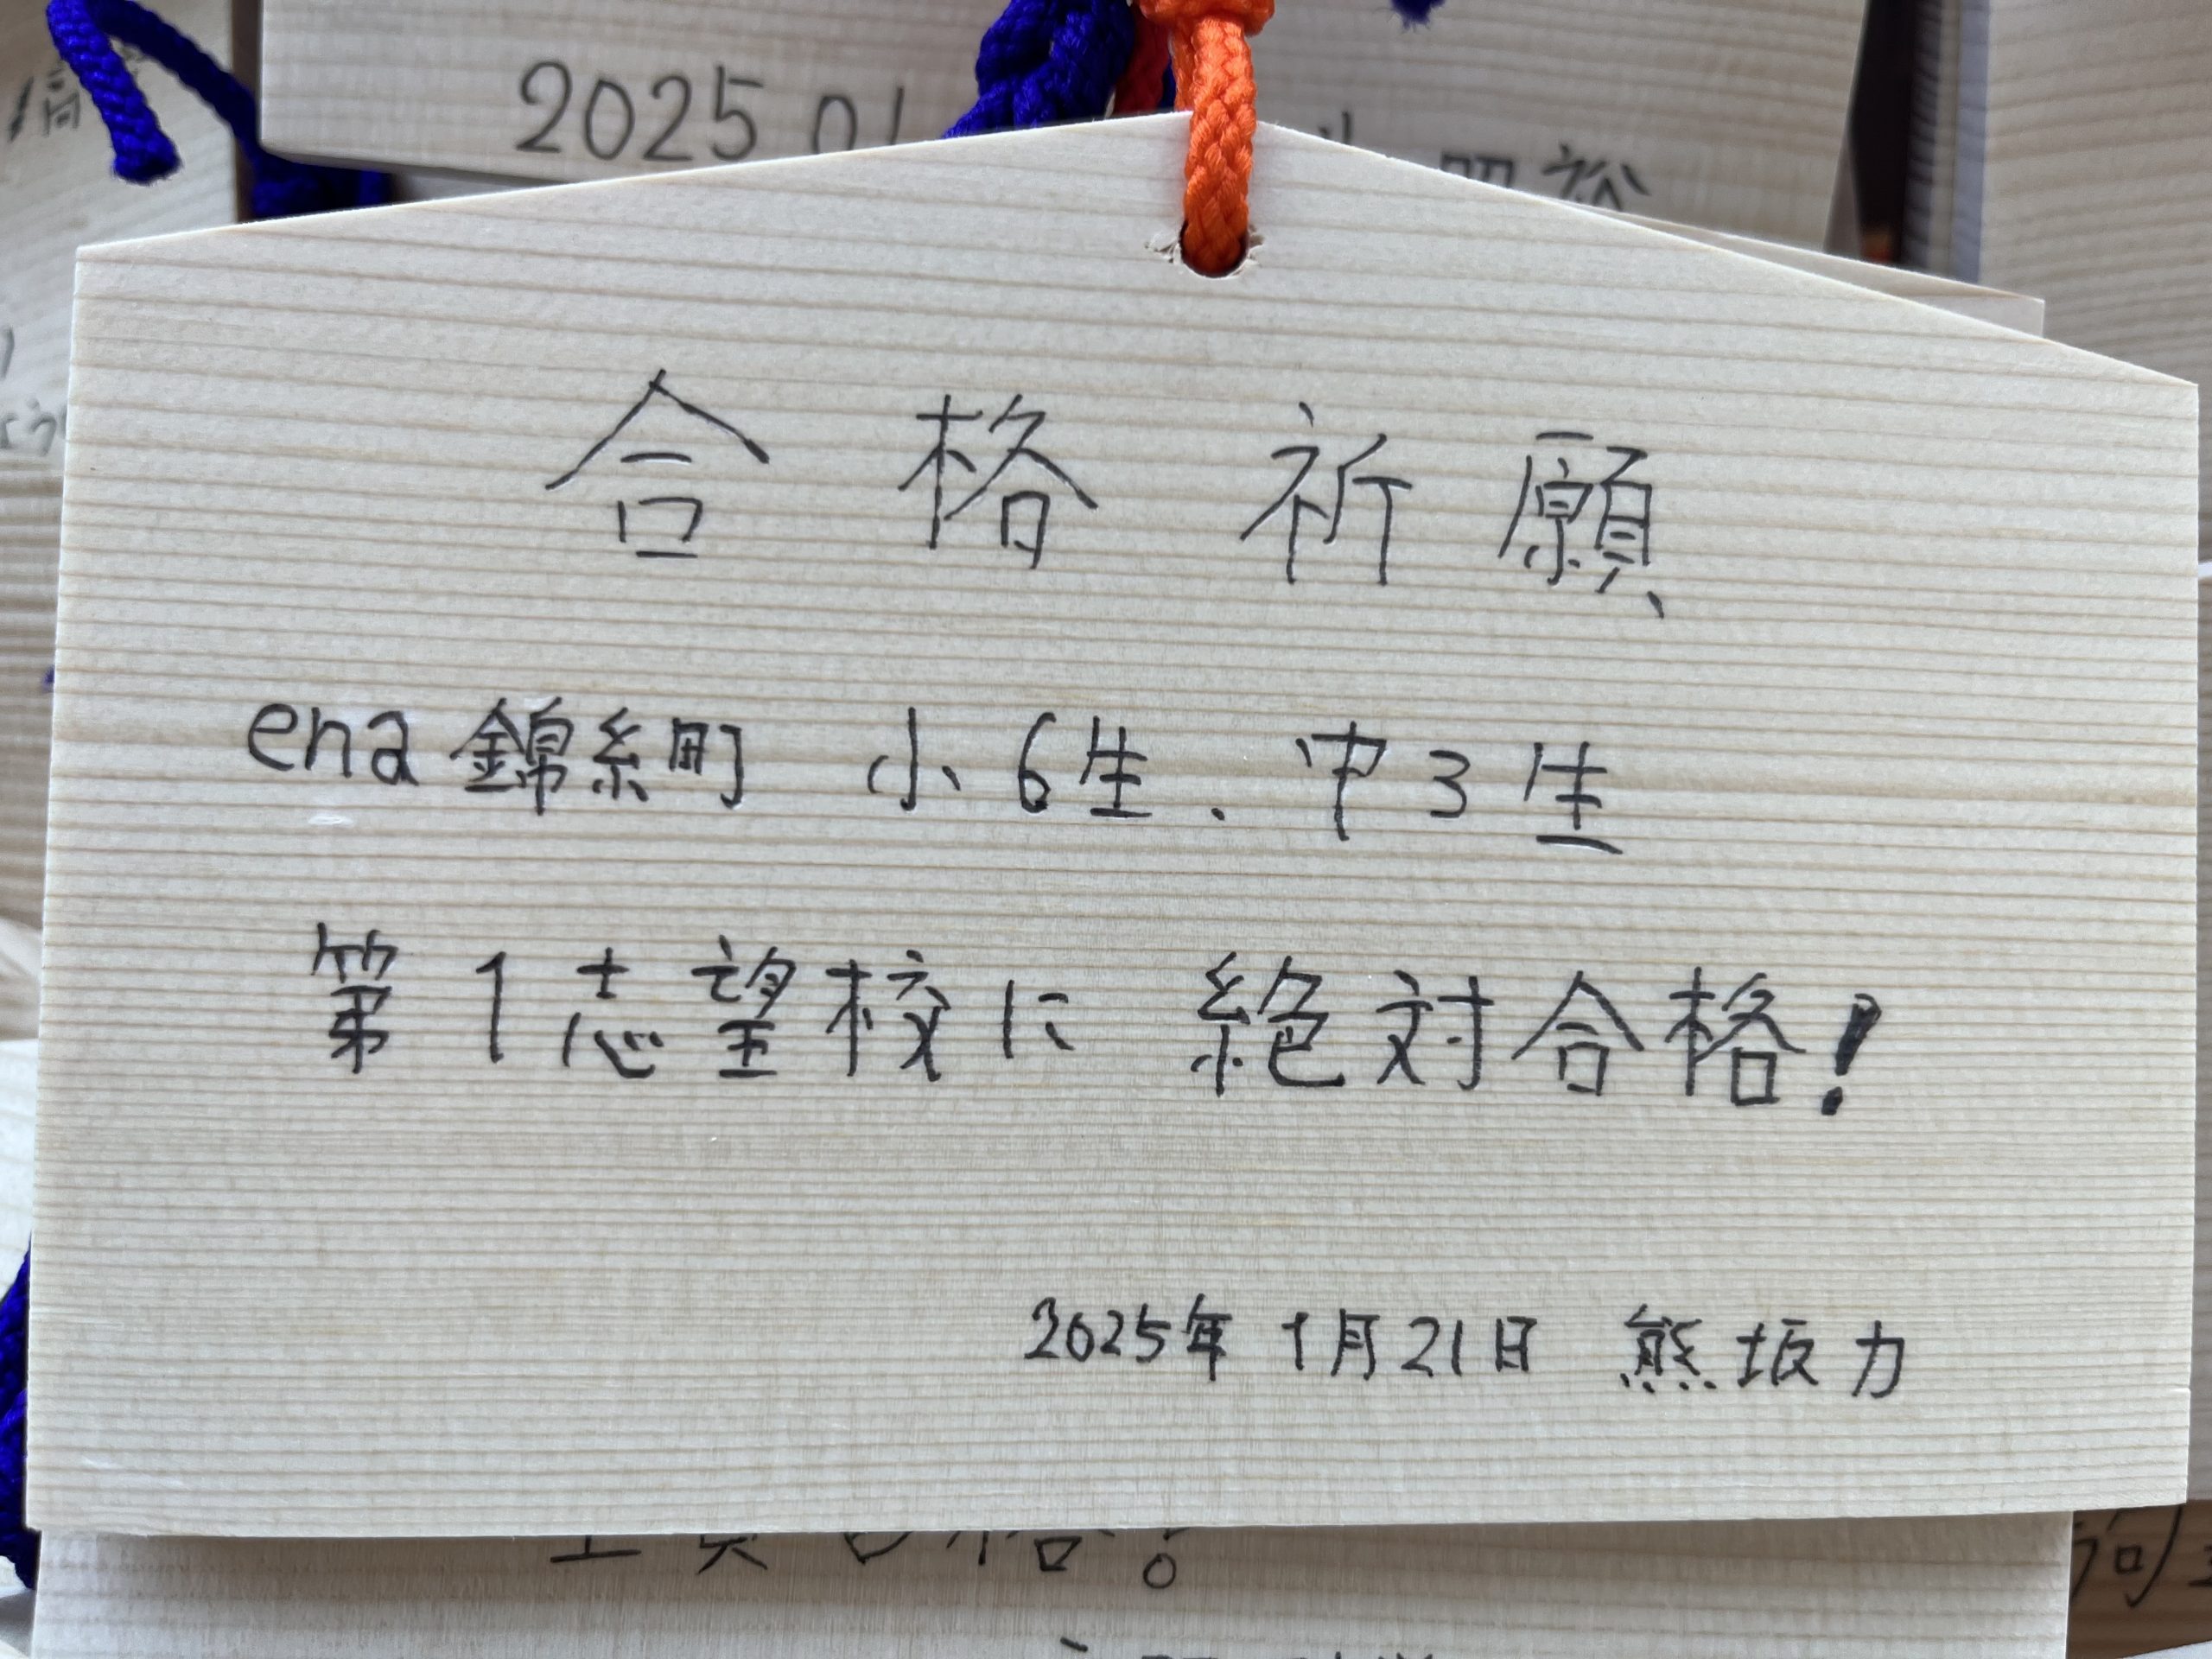 2025 01
合格祈願
ena 錦糸町 小6生、中3生
第1志望校に 絶対合格!
2025年 1月21日 熊坂力